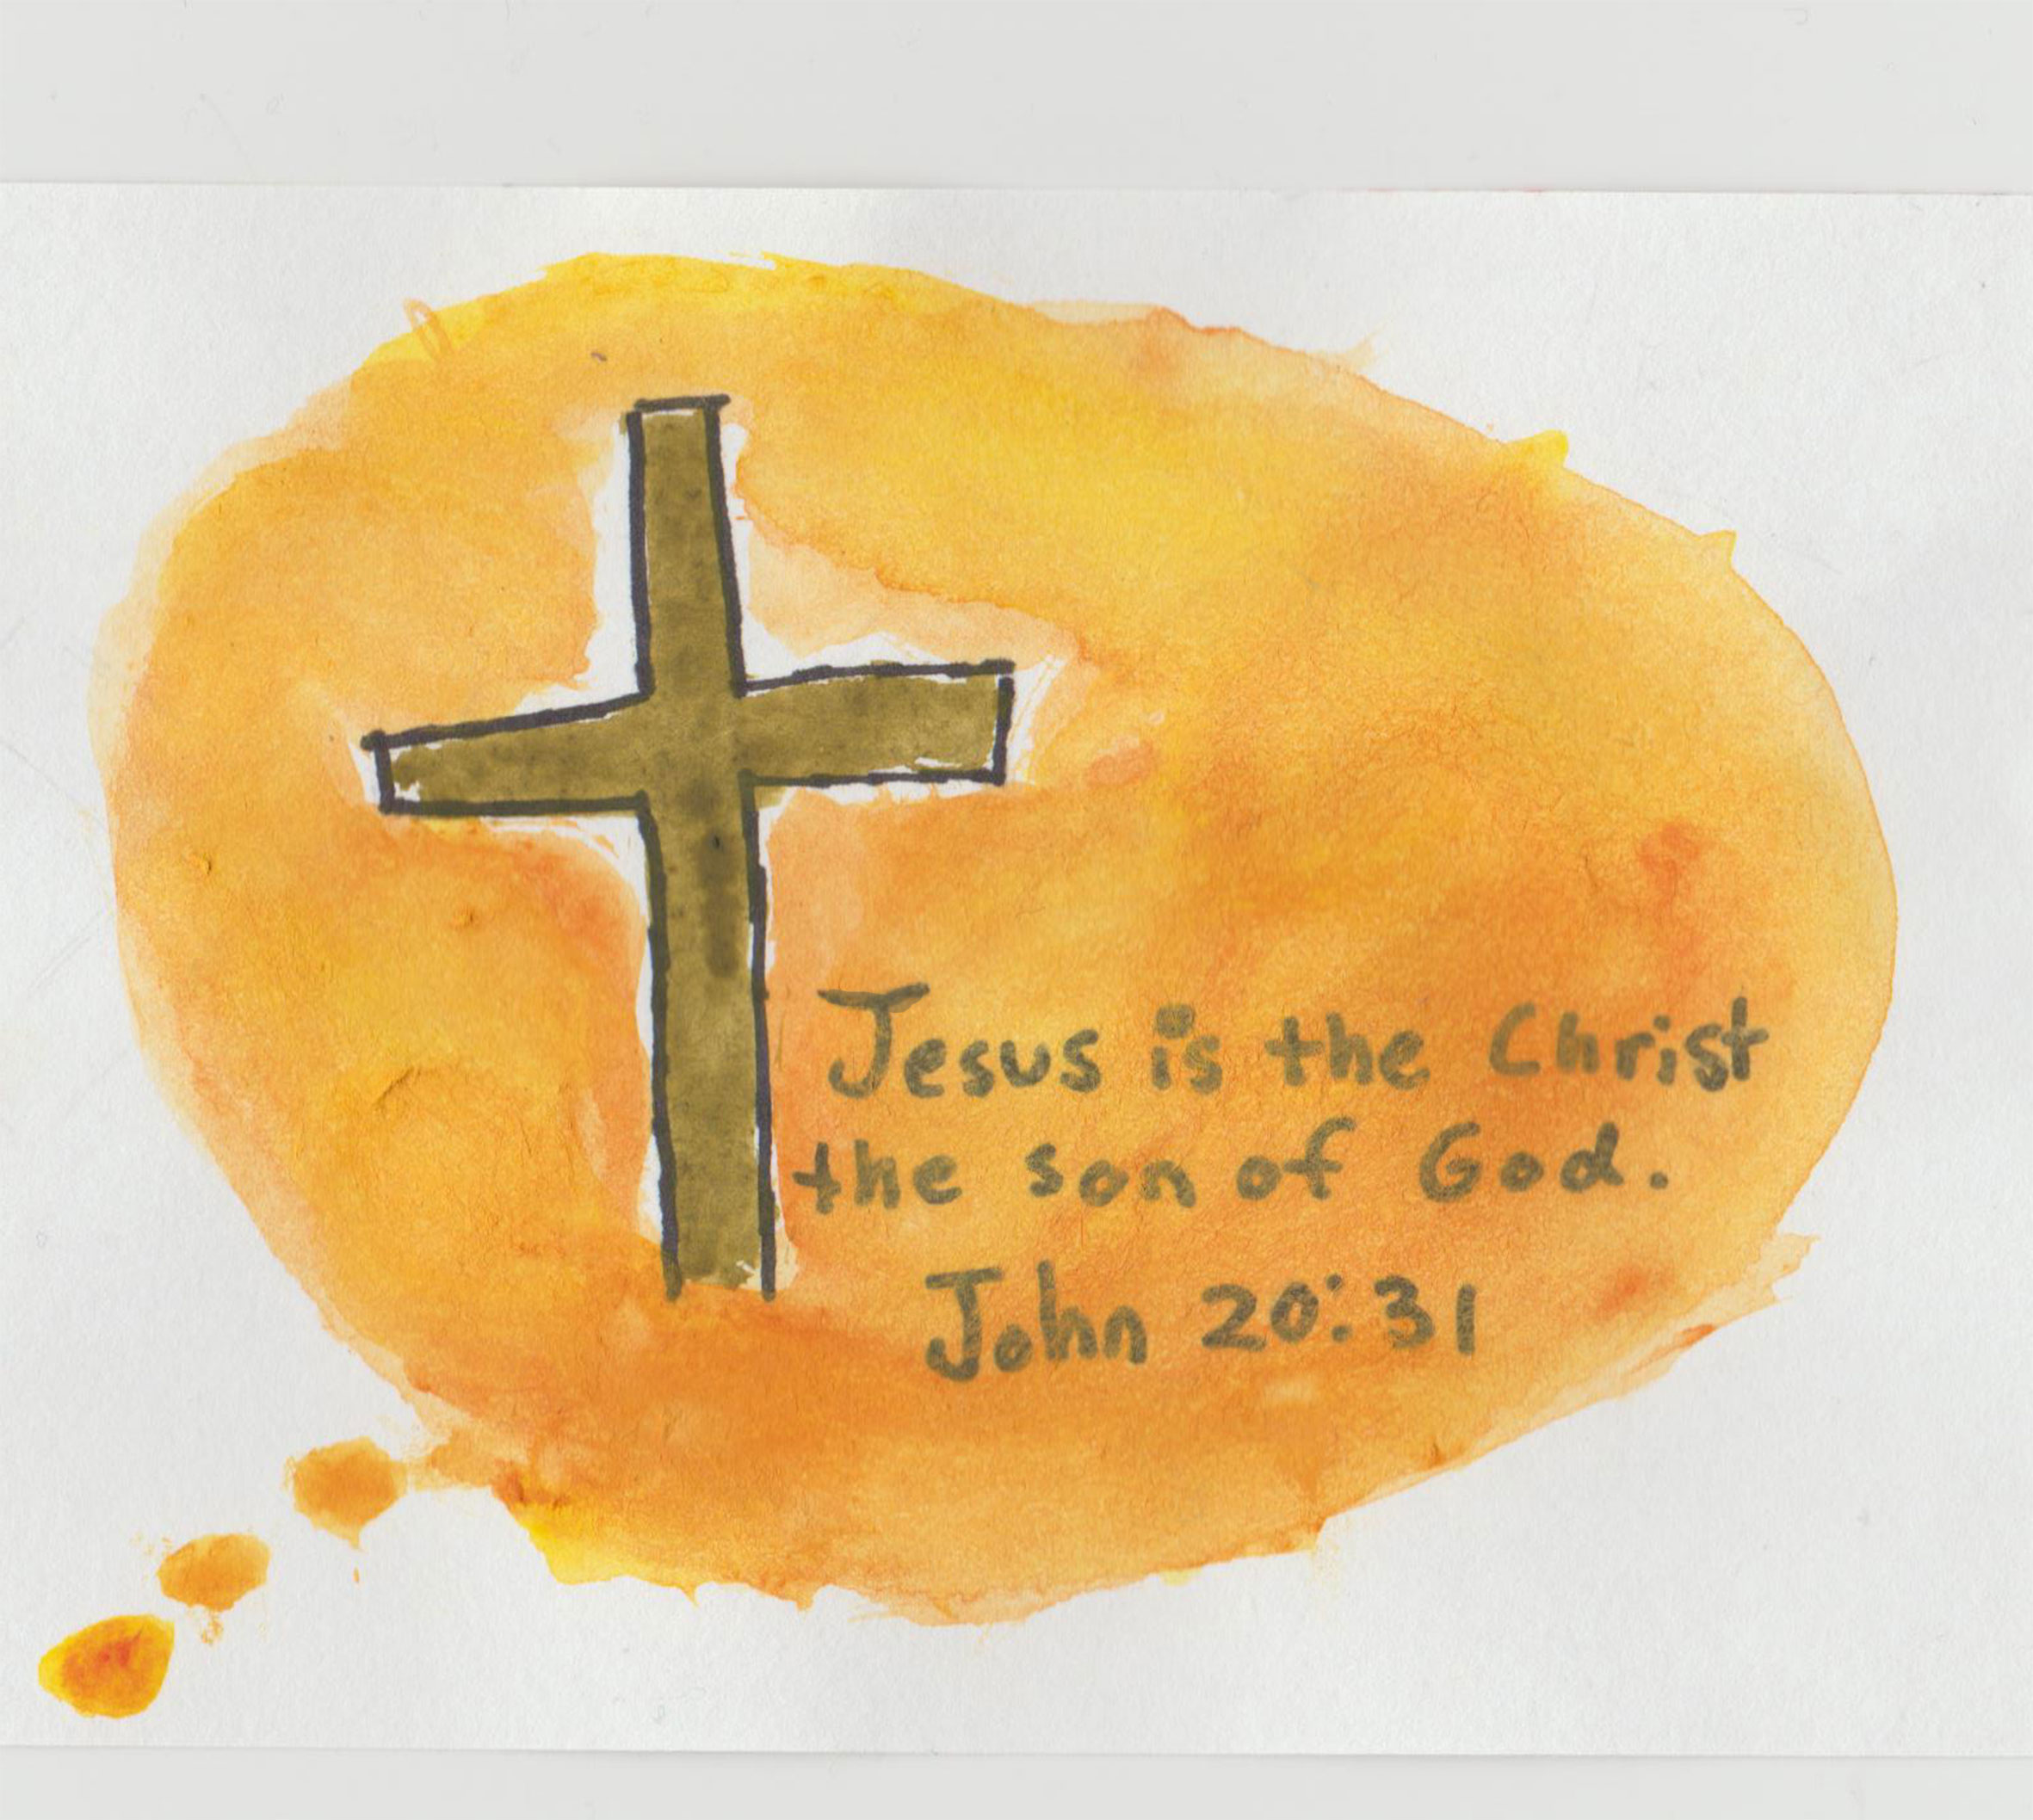 Jesus is the Christ
the son of God.
John 20:31